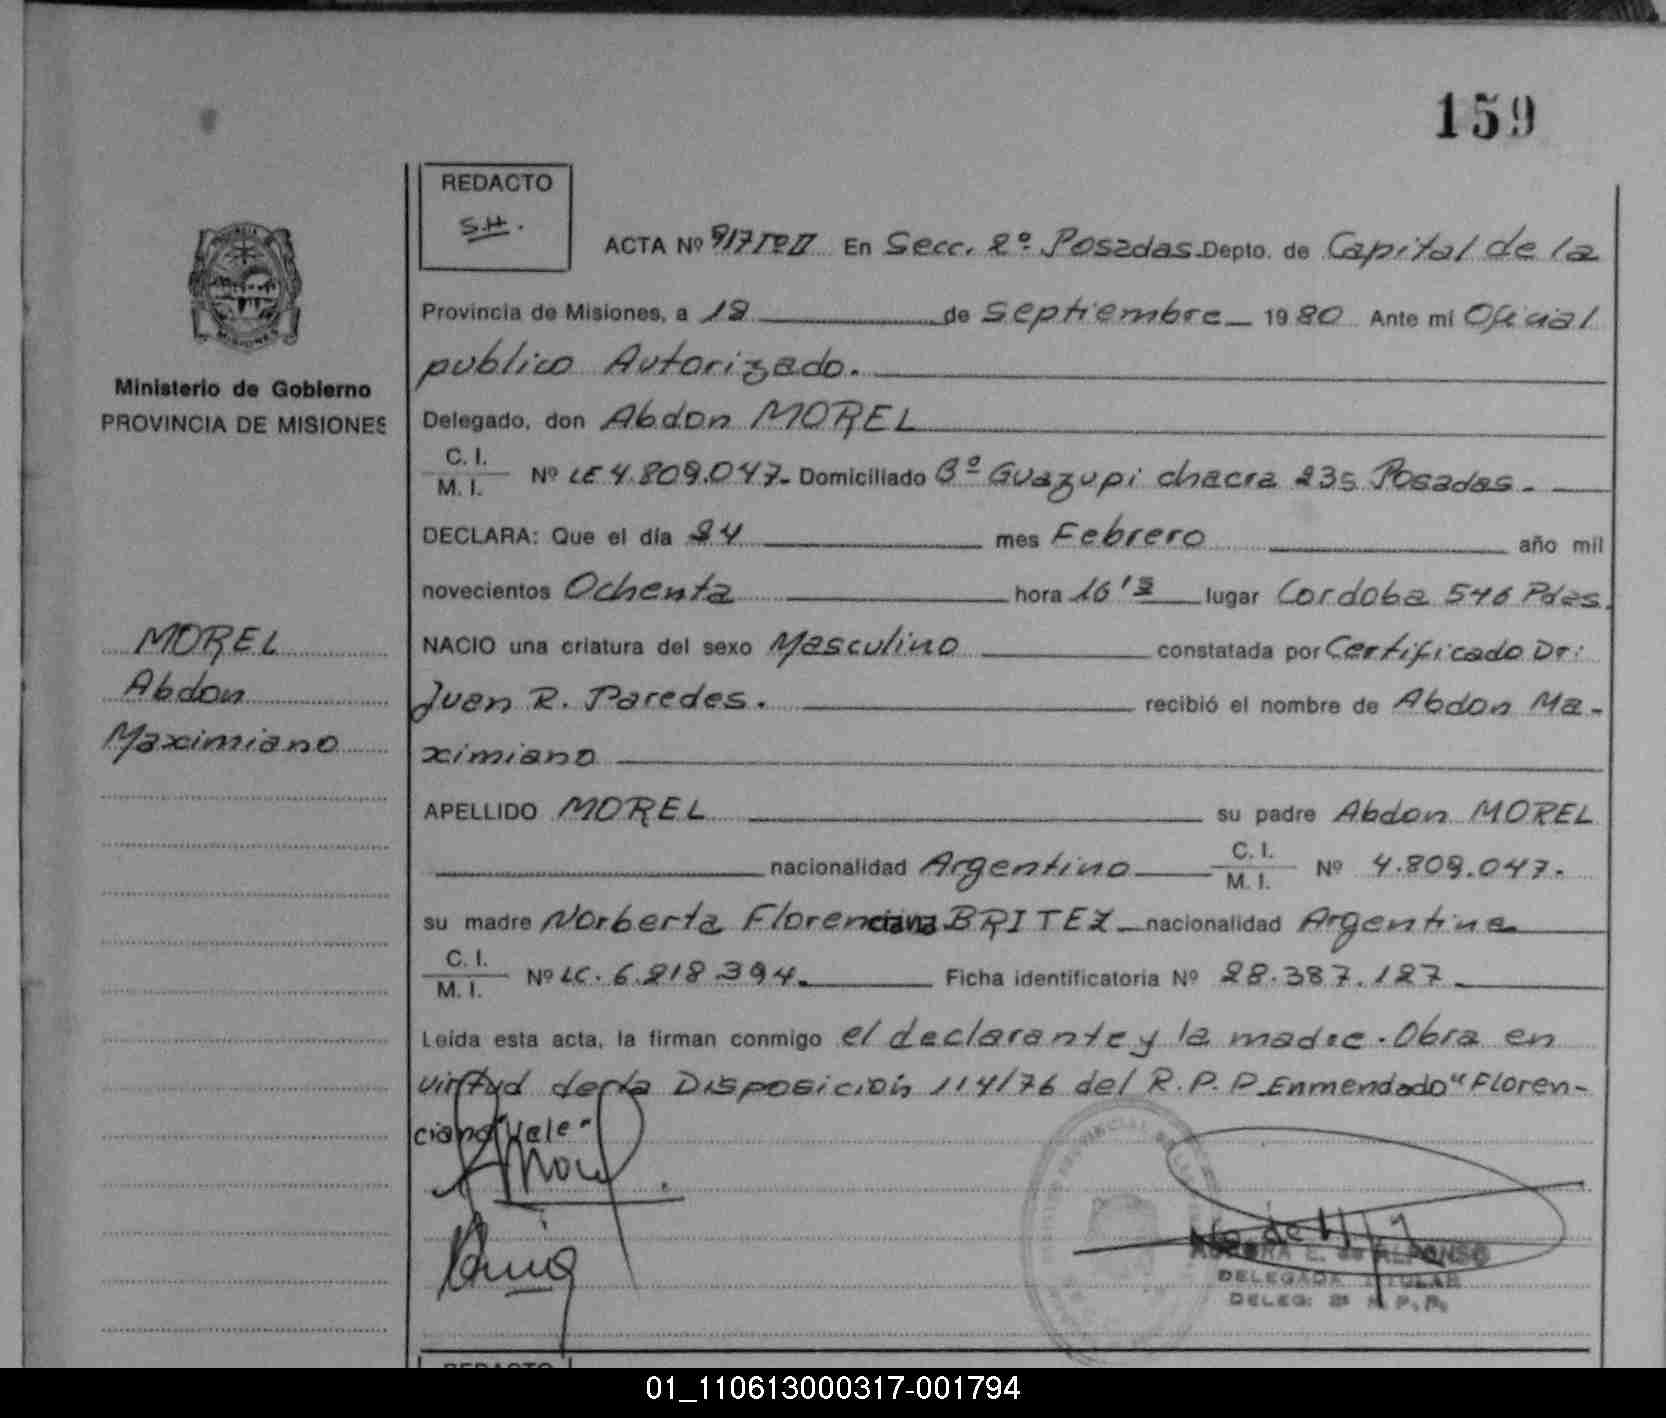 159
REDACTO
S.H.
ACTA Nº 917 Tº II En Secc. 2º Posadas Depto. de Capital de la
Provincia de Misiones, a 18 de Septiembre 1980 Ante mi Oficial
publico Autorizado.
Ministerio de Gobierno
PROVINCIA DE MISIONES
Delegado, don Abdon MOREL
C. I.
M. I. Nº LE 4.809.047. Domiciliado Bº Guazupi chacra 235 Posadas.
DECLARA: Que el día 24 mes Febrero año mil
novecientos Ochenta hora 16 lugar Cordoba 546 Pdas.
MOREL
Abdon
Maximiano
NACIO una criatura del sexo Masculino constatada por Certificado Dr:
Juan R. Paredes. recibió el nombre de Abdon Ma-
ximiano
APELLIDO MOREL su padre Abdon MOREL
nacionalidad Argentino C. I. M. I. Nº 4.809.047.
su madre Norberta Florenciana BRITEZ nacionalidad Argentina
C. I.
M. I. Nº LC. 6.218.394. Ficha identificatoria Nº 28.387.127
Leída esta acta, la firman conmigo el declarante y la madre. Obra en
virtud de la Disposición 114/76 del R.P.P. Enmendado "Floren-
ciana" Vale-
E. de ALFONSO
DELEGADA TITULAR
DELEG. 2ª R.P.P.
REDACTO
01_110613000317-001794